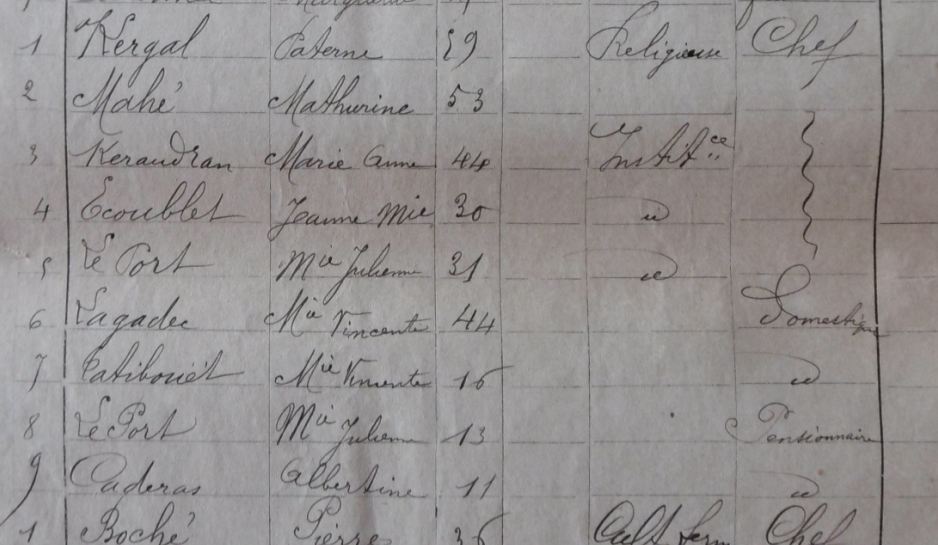 1 Kergal Paterne 59 Religieuse Chef
2 Mahé Mathurine 53
3 Keraudran Marie Anne 44 Instit.ce
4 Ecoublet Jeanne Mie 30 id
5 Le Port Mie Julienne 31 id
6 Lagadec Mie Vincente 44 Domestique
7 Patibouët Mie Vincente 16 id
8 Le Port Mie Julienne 13 Pensionnaire
9 Caderas Albertine 11 id
1 Boché Pierre 36 Cult. ferm Chef